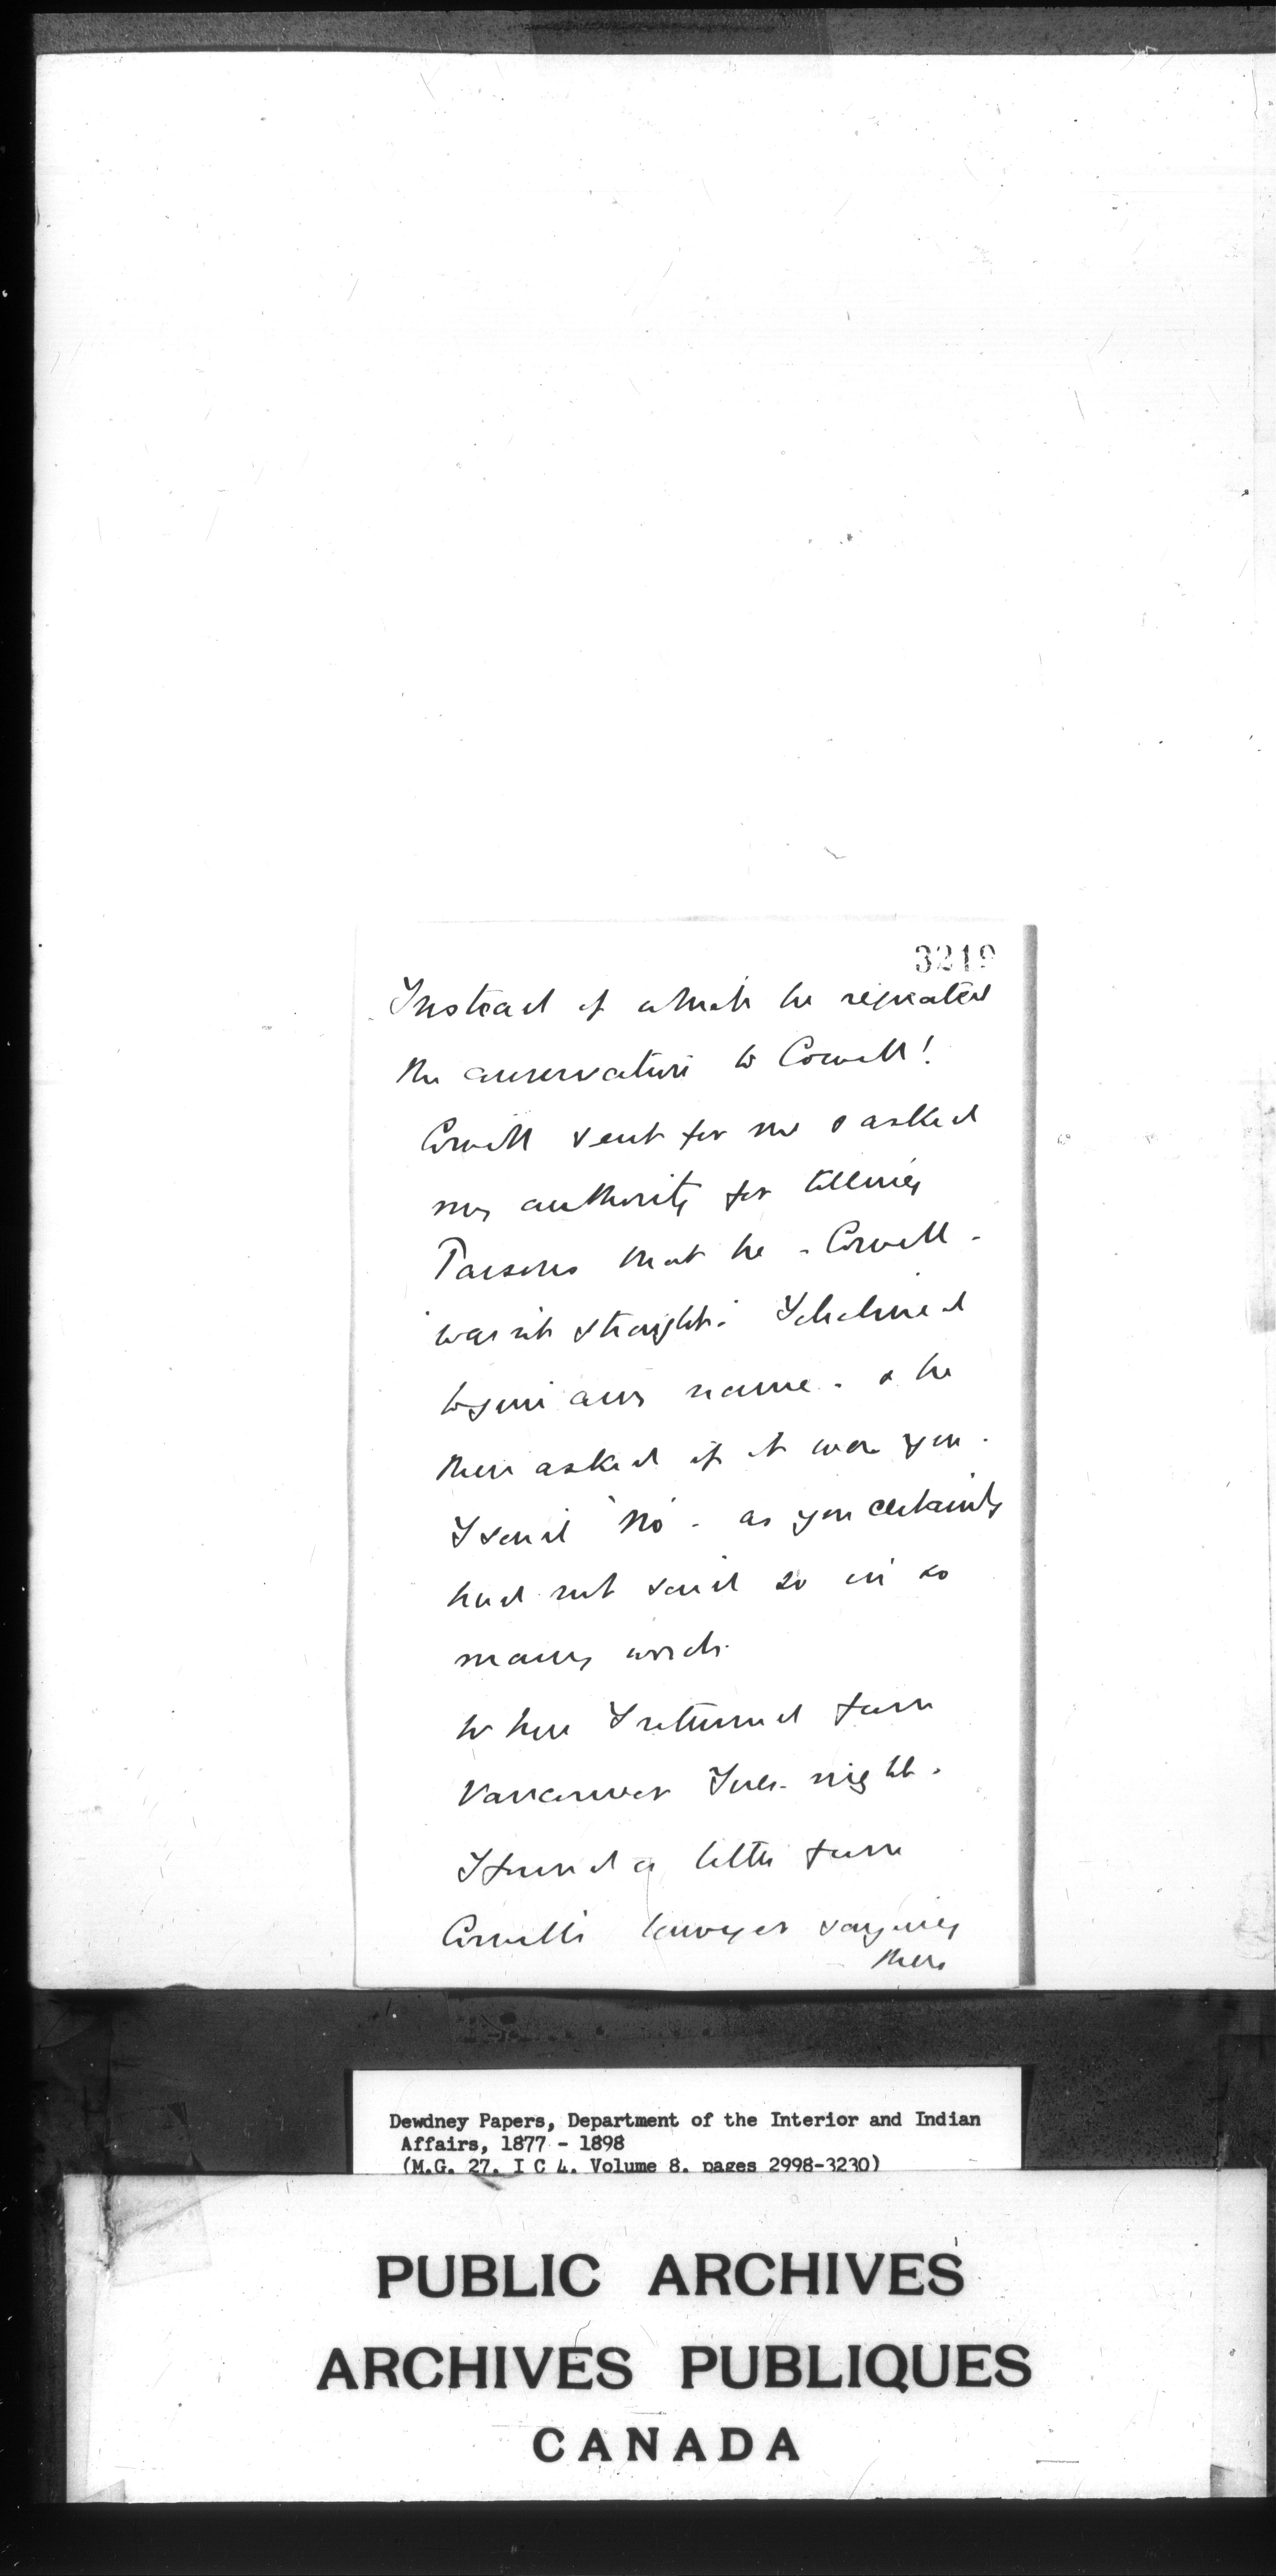 3219
Instead of which he repeated
the conversation to Cowell!
Cowell sent for me & asked
my authority for telling
Parsons that he - Cowell -
'wasn't straight'. I declined
to give any name - & he
then asked if it was you.
I said 'No' - as you certainly
had not said so in so
many words.
When I returned from
Vancouver Tues. night.
I found a letter from
Cowell's lawyer saying
there
Dewdney Papers, Department of the Interior and Indian
Affairs, 1877 - 1898
(M.G. 27, I C 4, Volume 8, pages 2998-3230)
PUBLIC ARCHIVES
ARCHIVES PUBLIQUES
CANADA